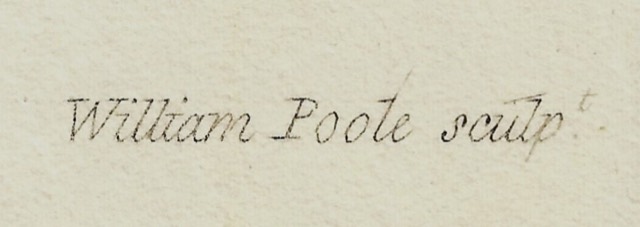 William Poole sculp.t